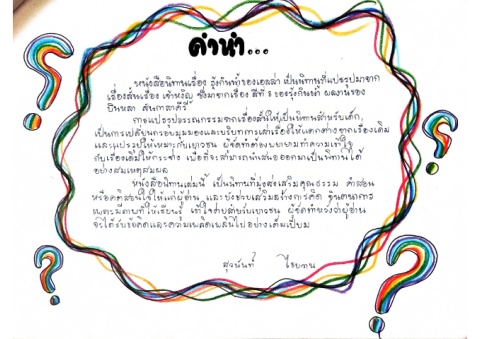 คำนำ...
หนังสือนิทานเรื่อง รุ้งกินน้ำของเอลล่า เป็นนิทานที่แปรรูปมาจาก
เรื่องสั้นเรื่อง เจ้าหงิญ ซึ่งมาจากเรื่อง สีที่ 8 ของรุ้งกินน้ำ ผลงานของ
บินหลา สันกาลาคีรี
การแปรรูปวรรณกรรมจากเรื่องสั้นให้เป็นนิทานสำหรับเด็ก
เป็นการเปลี่ยนกรอบมุมมองและบริบทการเล่าเรื่องให้แตกต่างจากเรื่องเดิม
และแปรรูปให้เหมาะกับเยาวชน ผู้จัดทำต้องพยายามทำความเข้าใจ
กับเรื่องเดิมให้กระจ่าง เพื่อที่จะสามารถนำเสนอออกมาเป็นนิทานได้
อย่างสมเหตุสมผล
หนังสือนิทานเล่มนี้ เป็นนิทานที่มุ่งส่งเสริมคุณธรรม คำสอน
หรือคติสอนใจให้แก่ผู้อ่าน และยังช่วยเสริมสร้างการคิด จินตนาการ
ผู้จัดทำหวังว่าผู้อ่าน
จะได้รับข้อคิดและความเพลิดเพลินไปอย่างเต็มเปี่ยม
สุวนันท์ ไชยทน